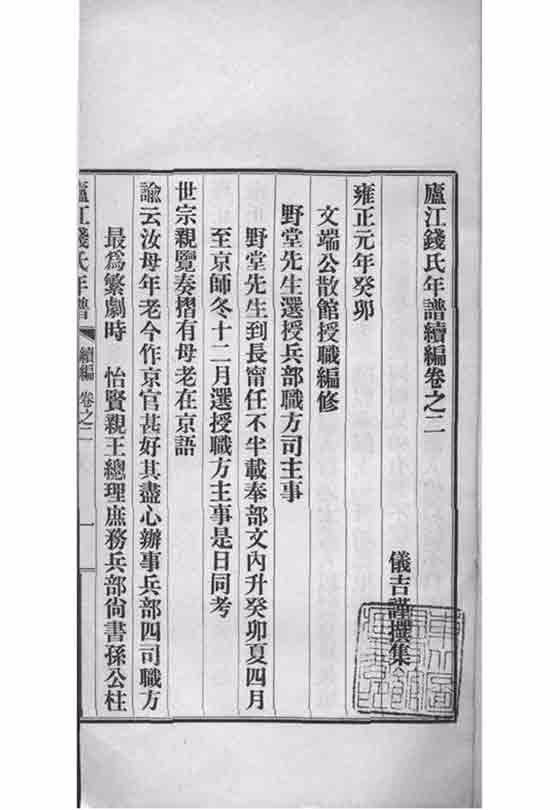 廬江錢氏年譜續編卷之二
儀吉謹撰集
雍正元年癸卯
文端公散館授職編修
野堂先生選授兵部職方司主事
野堂先生到長甯任不半載奉部文內升癸卯夏四月
至京師冬十二月選授職方主事是日同考
世宗親覽奏摺有母老在京語
諭云汝母年老今作京官甚好其盡心辦事兵部四司職方
最爲繁劇時　怡賢親王總理庶務兵部尙書孫公柱
廬江錢氏年譜 續編 卷之二 一